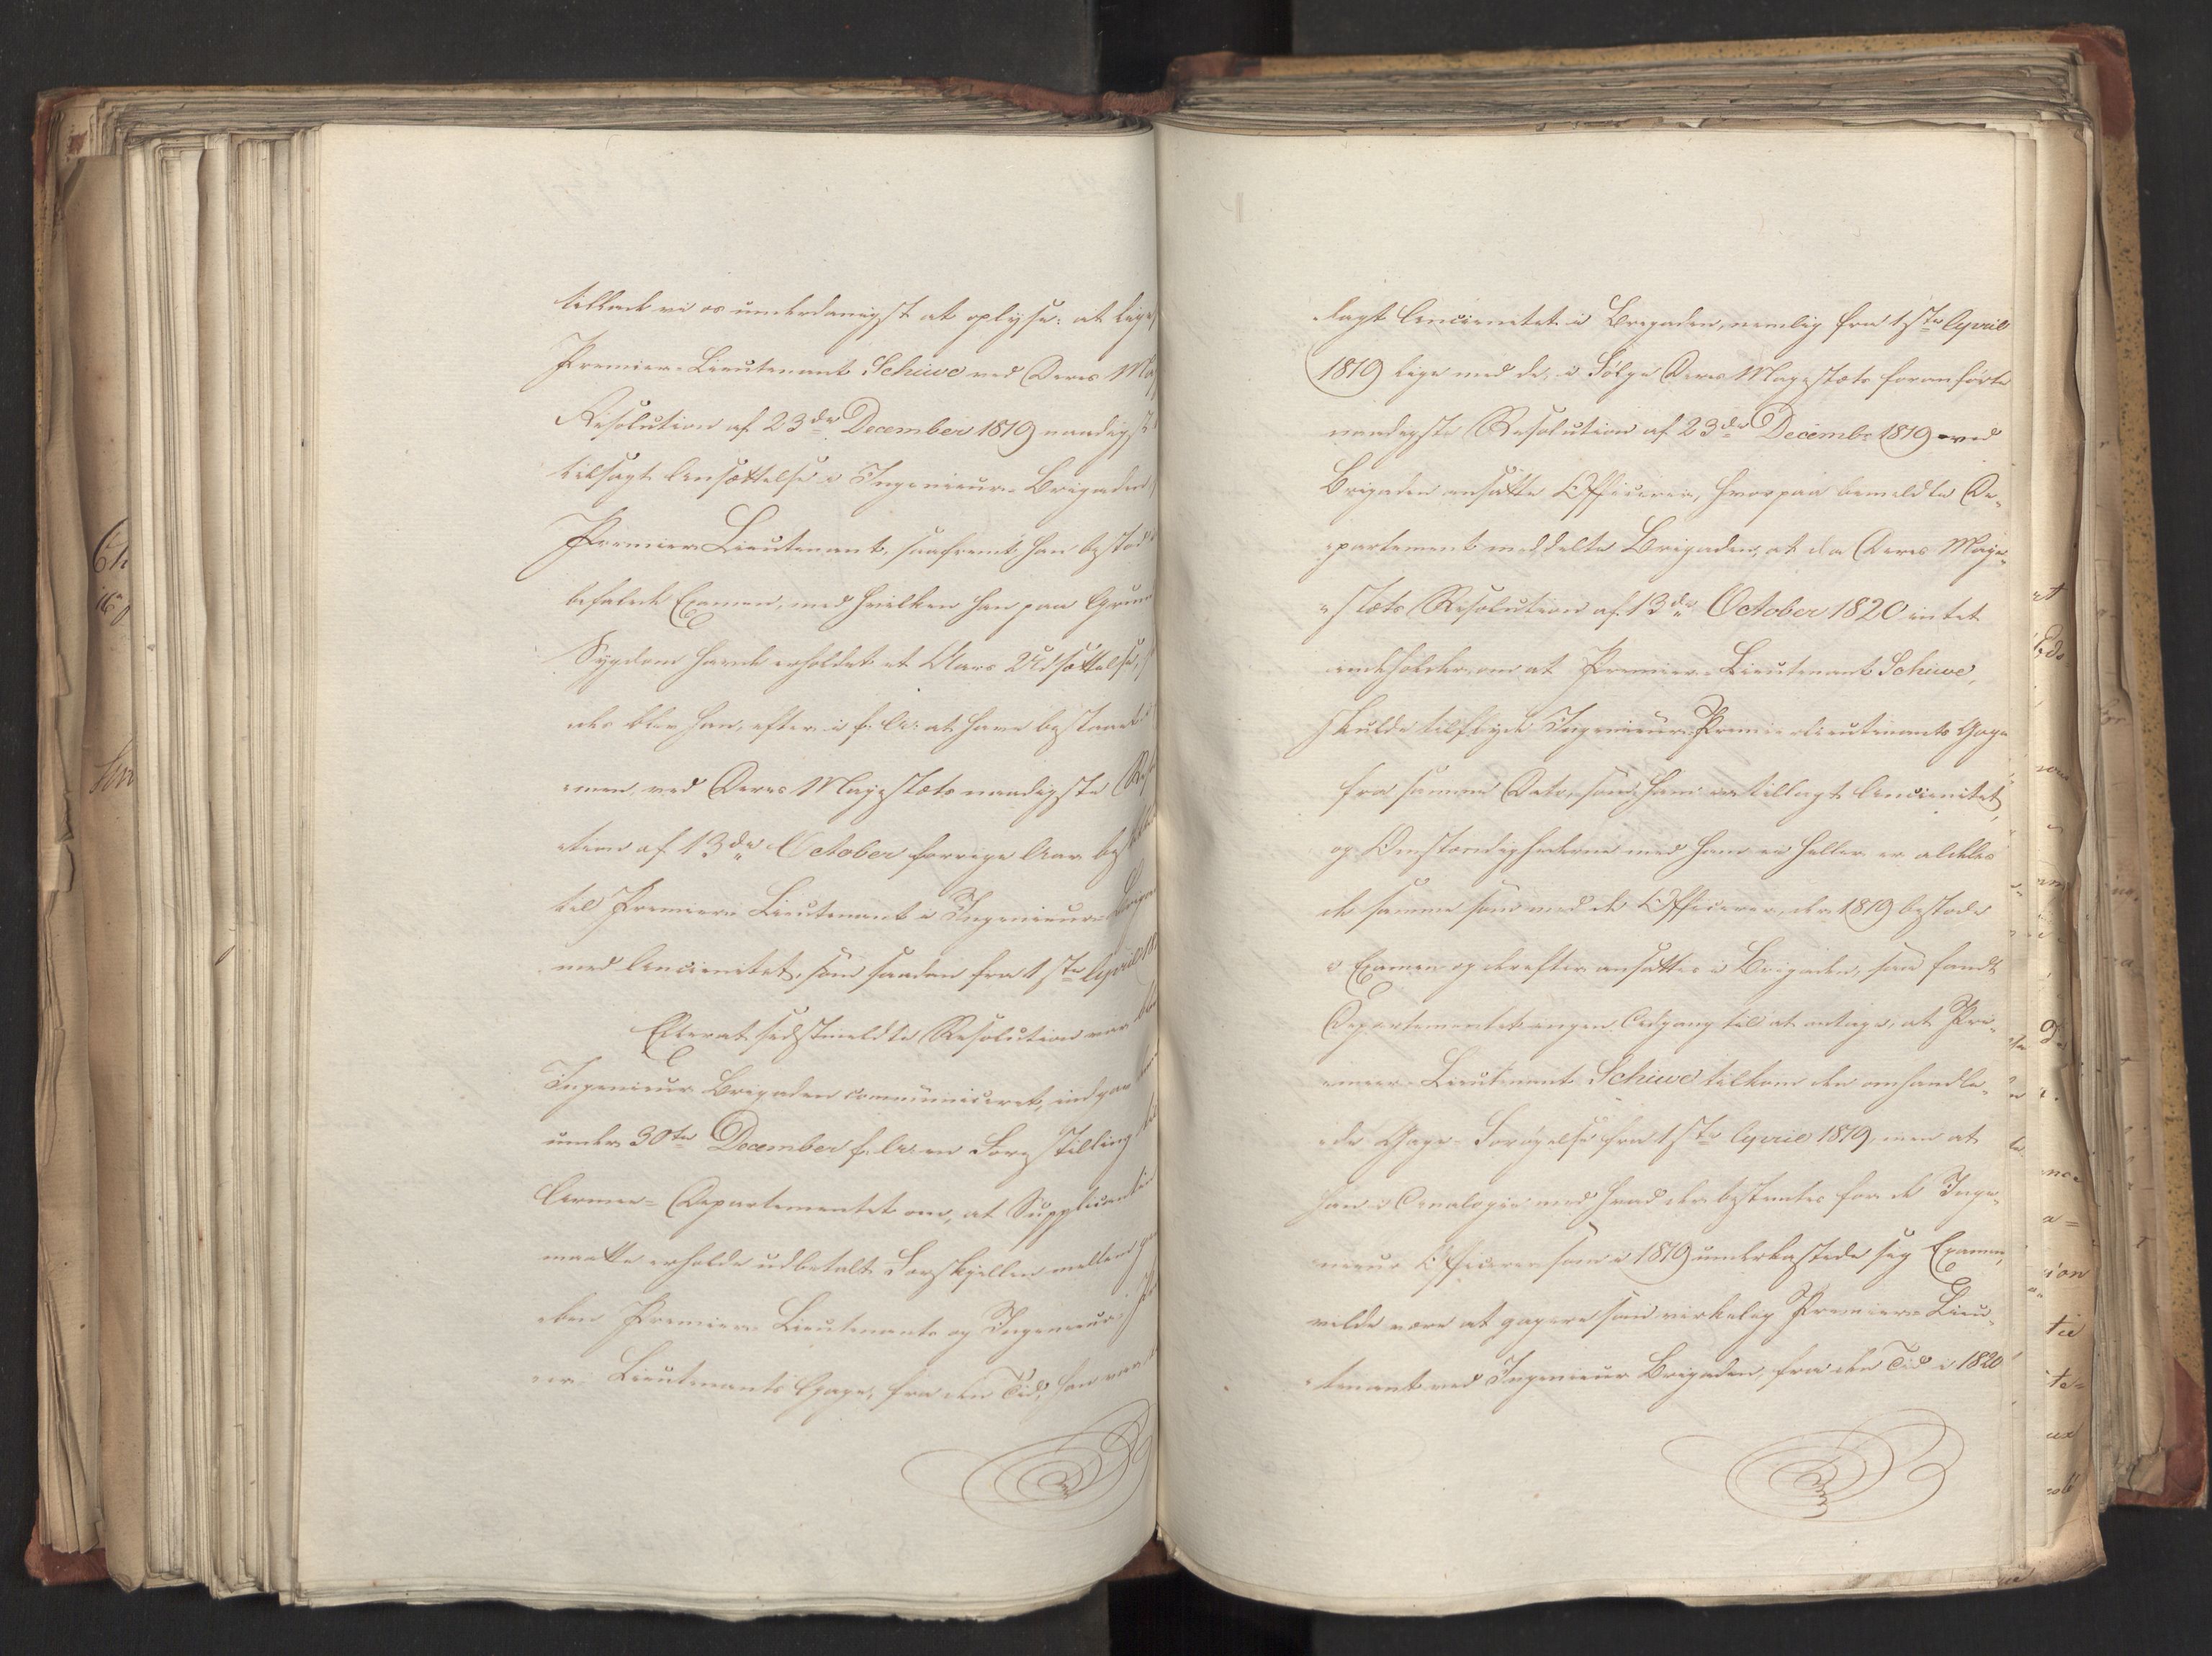 tillade vi os underdanigst at oplyse: at
Premier-Lieutenant Schiwe ved Deres
Resolution af 23de December 1819 naadigst
tilsagt Ansættelse i Ingenieur-Brigaden
Premier Lieutenant, saafremt han bestod
befalede Examen, med hvilken han paa Grund
Sygdom havde erholdet et Aars Udsættelse,
blev han, efter i f. A. at have bestaaet
-men, ved Deres Majestæts naadigste
-tion af 13de October forrige Aar
til Premier Lieutenant i Ingenieur-
med Ancienitet som saadan fra 1ste April
Efterat sidstmeldte Resolution var
Ingenieur Brigaden communiceret, indgav
under 30te December f. A. en Forestilling
Armee-Departementet om, at Supplicanten
maatte erholde udbetalt Forskjellen mellem
Premier Lieutenants og Ingenieur
Lieutenants Gage, fra den Tid, han var
-lagt Ancienitet i Brigaden, nemlig fra 1ste April
1819 lige med de, i Følge Deres Majestæts foranførte
naadigste Resolution af 23de Decembr 1819 ved
Brigaden ansatte Officerer, hvorpaa bemeldte De-
-partement meddelte Brigaden, at da Deres Maje-
-stæts Resolution af 13de October 1820 intet
indeholder om at Premier-Lieutenant Schiwe,
skulde tilflyde Ingenieur Premier Lieutenants Gage
fra samme Dato, som ham er tillagt Ancienitet,
og Omstændighederne med ham ei heller er aldeles
de samme som med de Officerer, der 1819 bestode
Examen og derefter ansattes i Brigaden, saa fandt
Departementet ingen Adgang til at antage, at Pre-
-mier-Lieutenant Schiwe tilkom den omhandle-
-de Gage-Forøgelse fra 1ste April 1819, men at
han i Analogie med hvad der bestemtes for de Inge-
-nieur Officerer som i 1819 underkastede sig Examen,
vilde være at gagere som virkelig Premier-Lieu-
-tenant ved Ingenieur Brigaden, fra den Tid i 1820